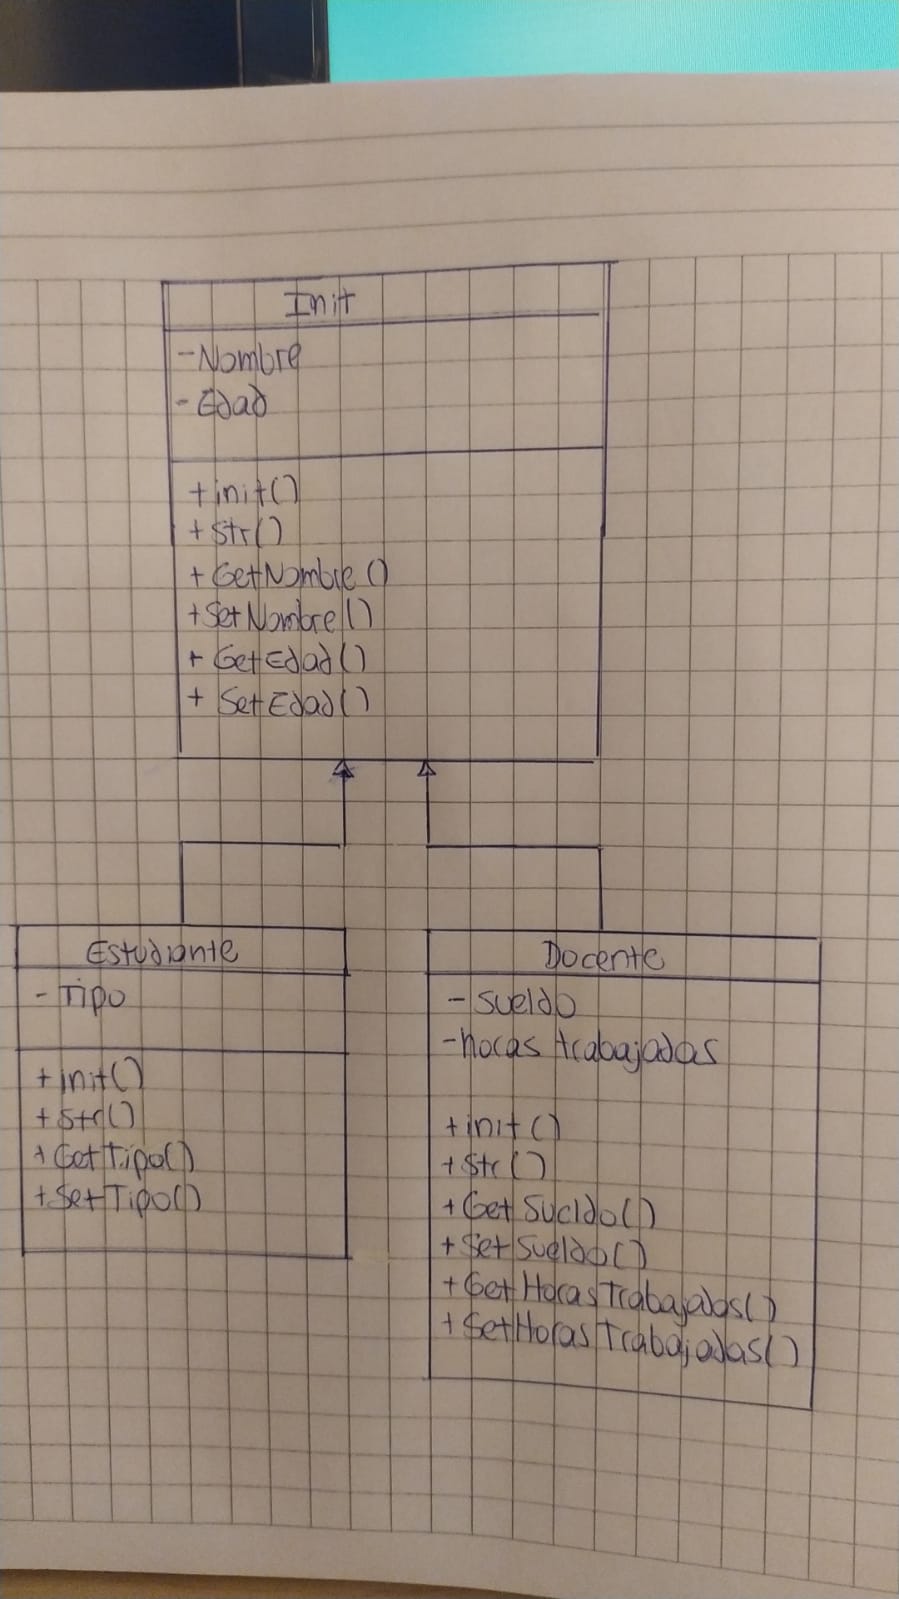 Init
-Nombre
-Edad
+init()
+Str()
+GetNombre()
+SetNombre()
+GetEdad()
+SetEdad()
Estudiante
-Tipo
+init()
+Str()
+GetTipo()
+SetTipo()
Docente
-sueldo
-horas trabajadas
+init()
+Str()
+GetSueldo()
+SetSueldo()
+GetHorasTrabajadas()
+SetHorasTrabajadas()